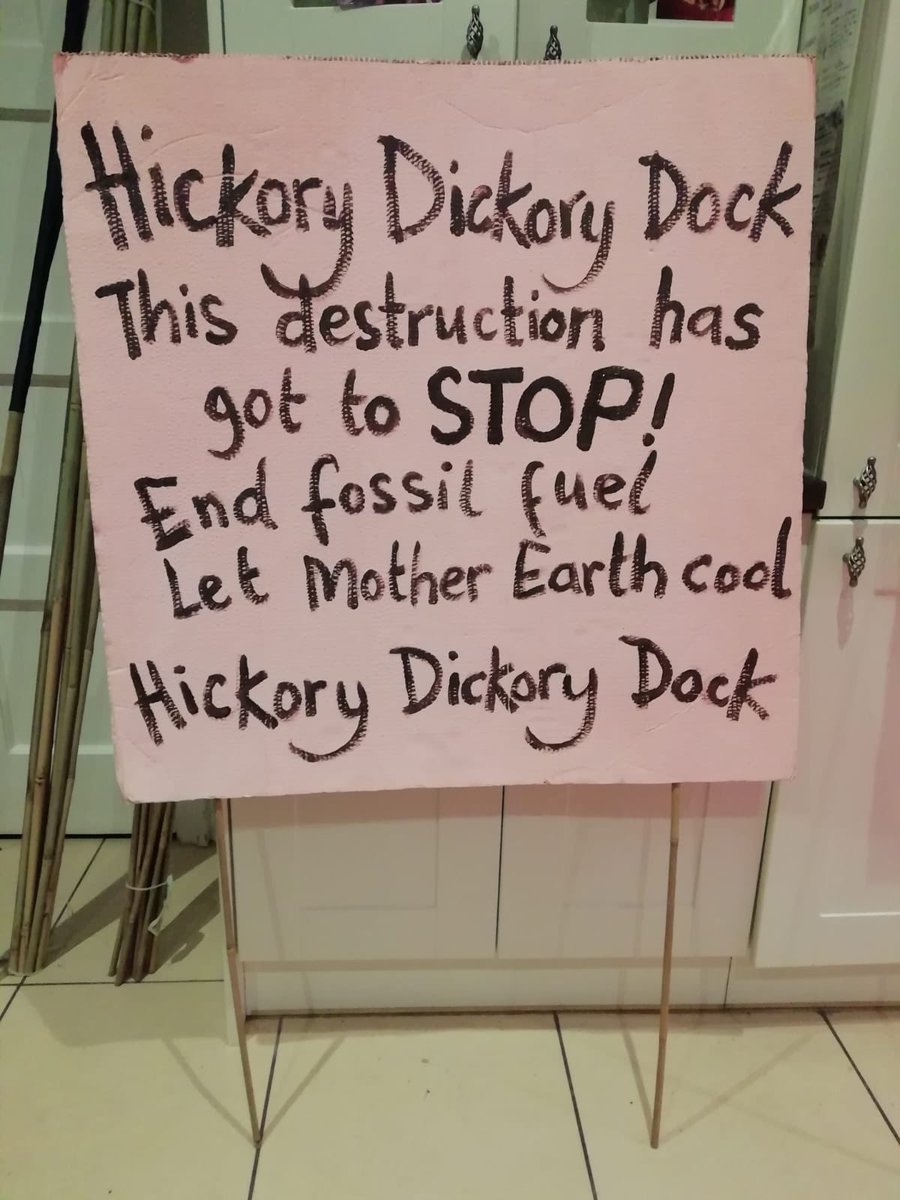 Hickory Dickory Dock
This destruction has
got to STOP!
End fossil fuel
Let Mother Earth cool
Hickory Dickory Dock